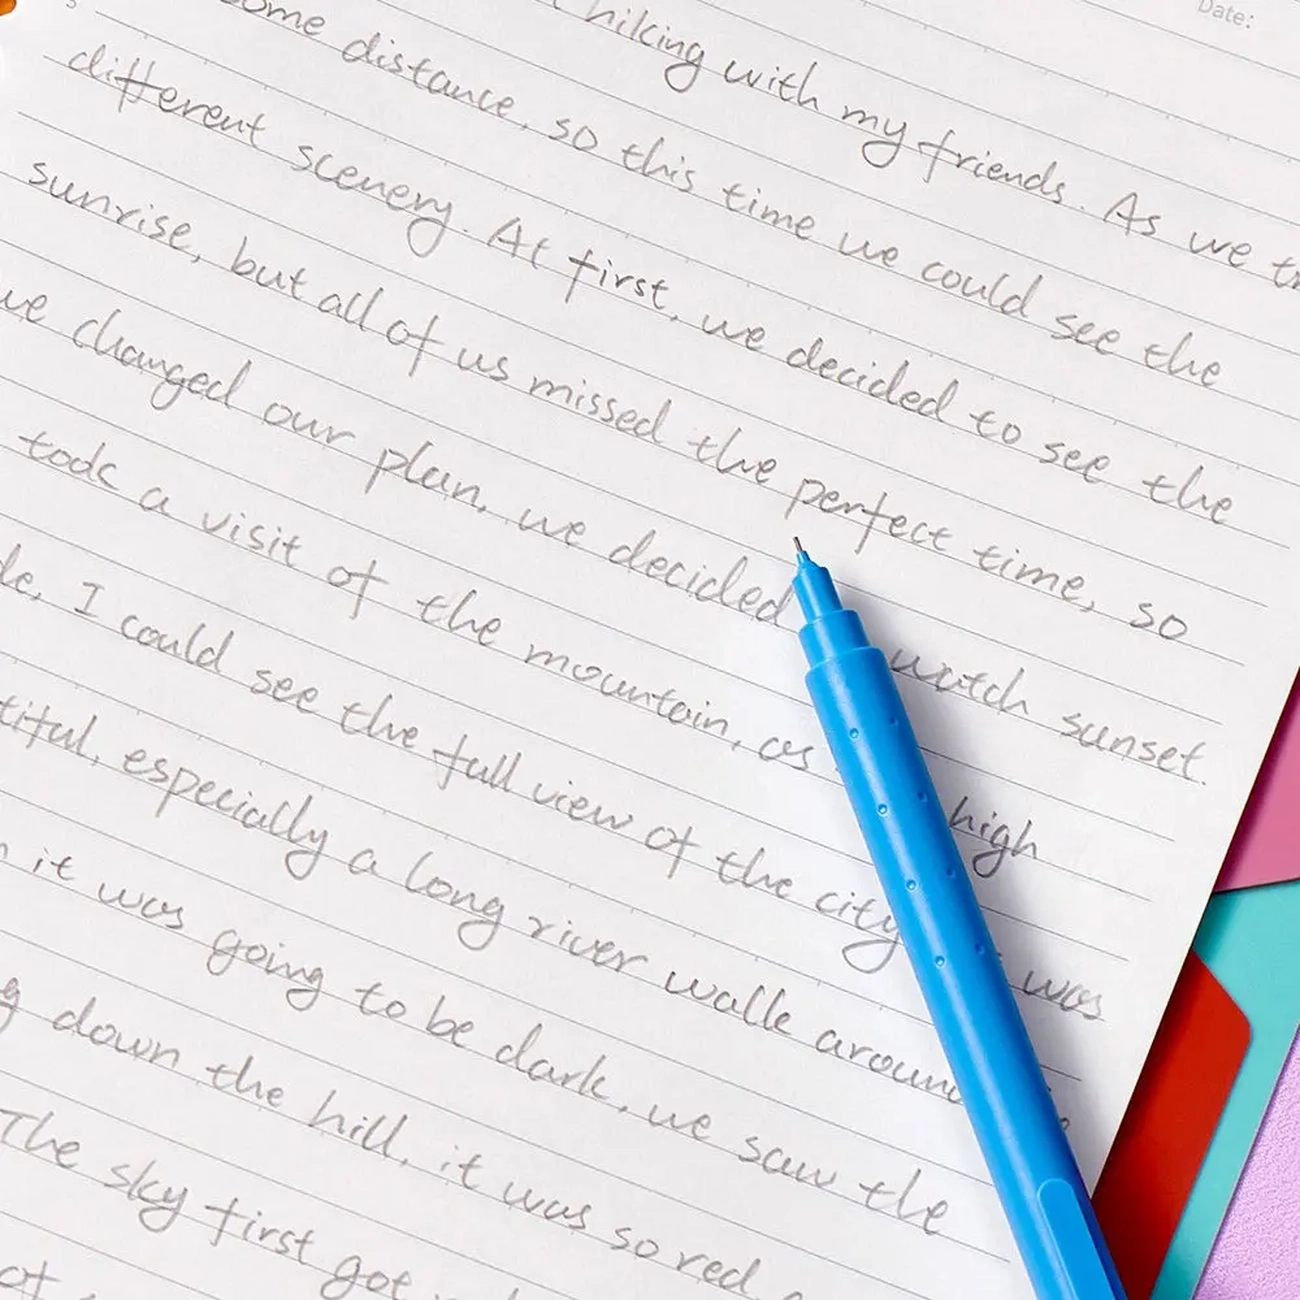 Date:
hiking with my friends. As we
some distance, so this time we could see the
different scenery. At first, we decided to see the
sunrise, but all of us missed the perfect time, so
we changed our plan, we decided watch sunset.
took a visit of the mountain, as high
I could see the full view of the city was
especially a long river walk around
it was going to be dark, we saw the
down the hill, it was so red
The sky first got